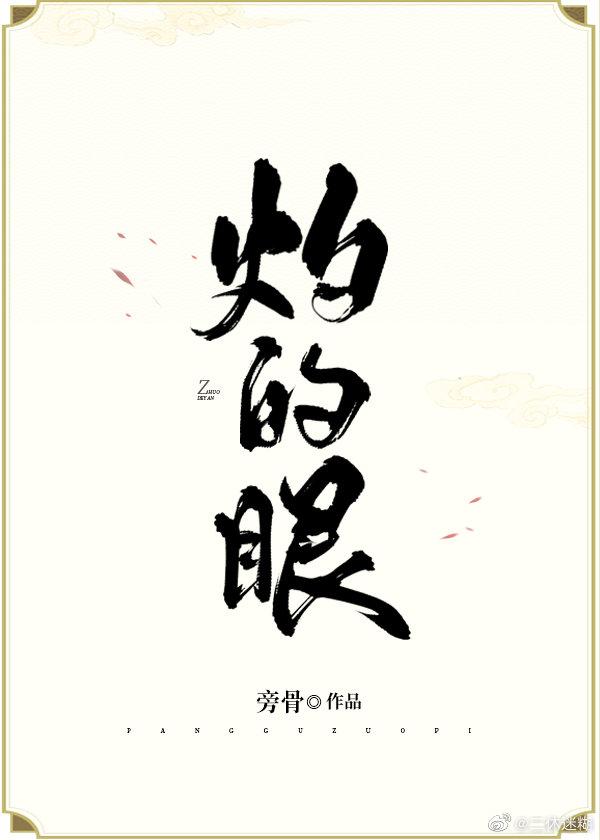 灼的眼
ZHUO
DEYAN
旁骨◎作品
PANGGUZUOPI
@三休迷糊